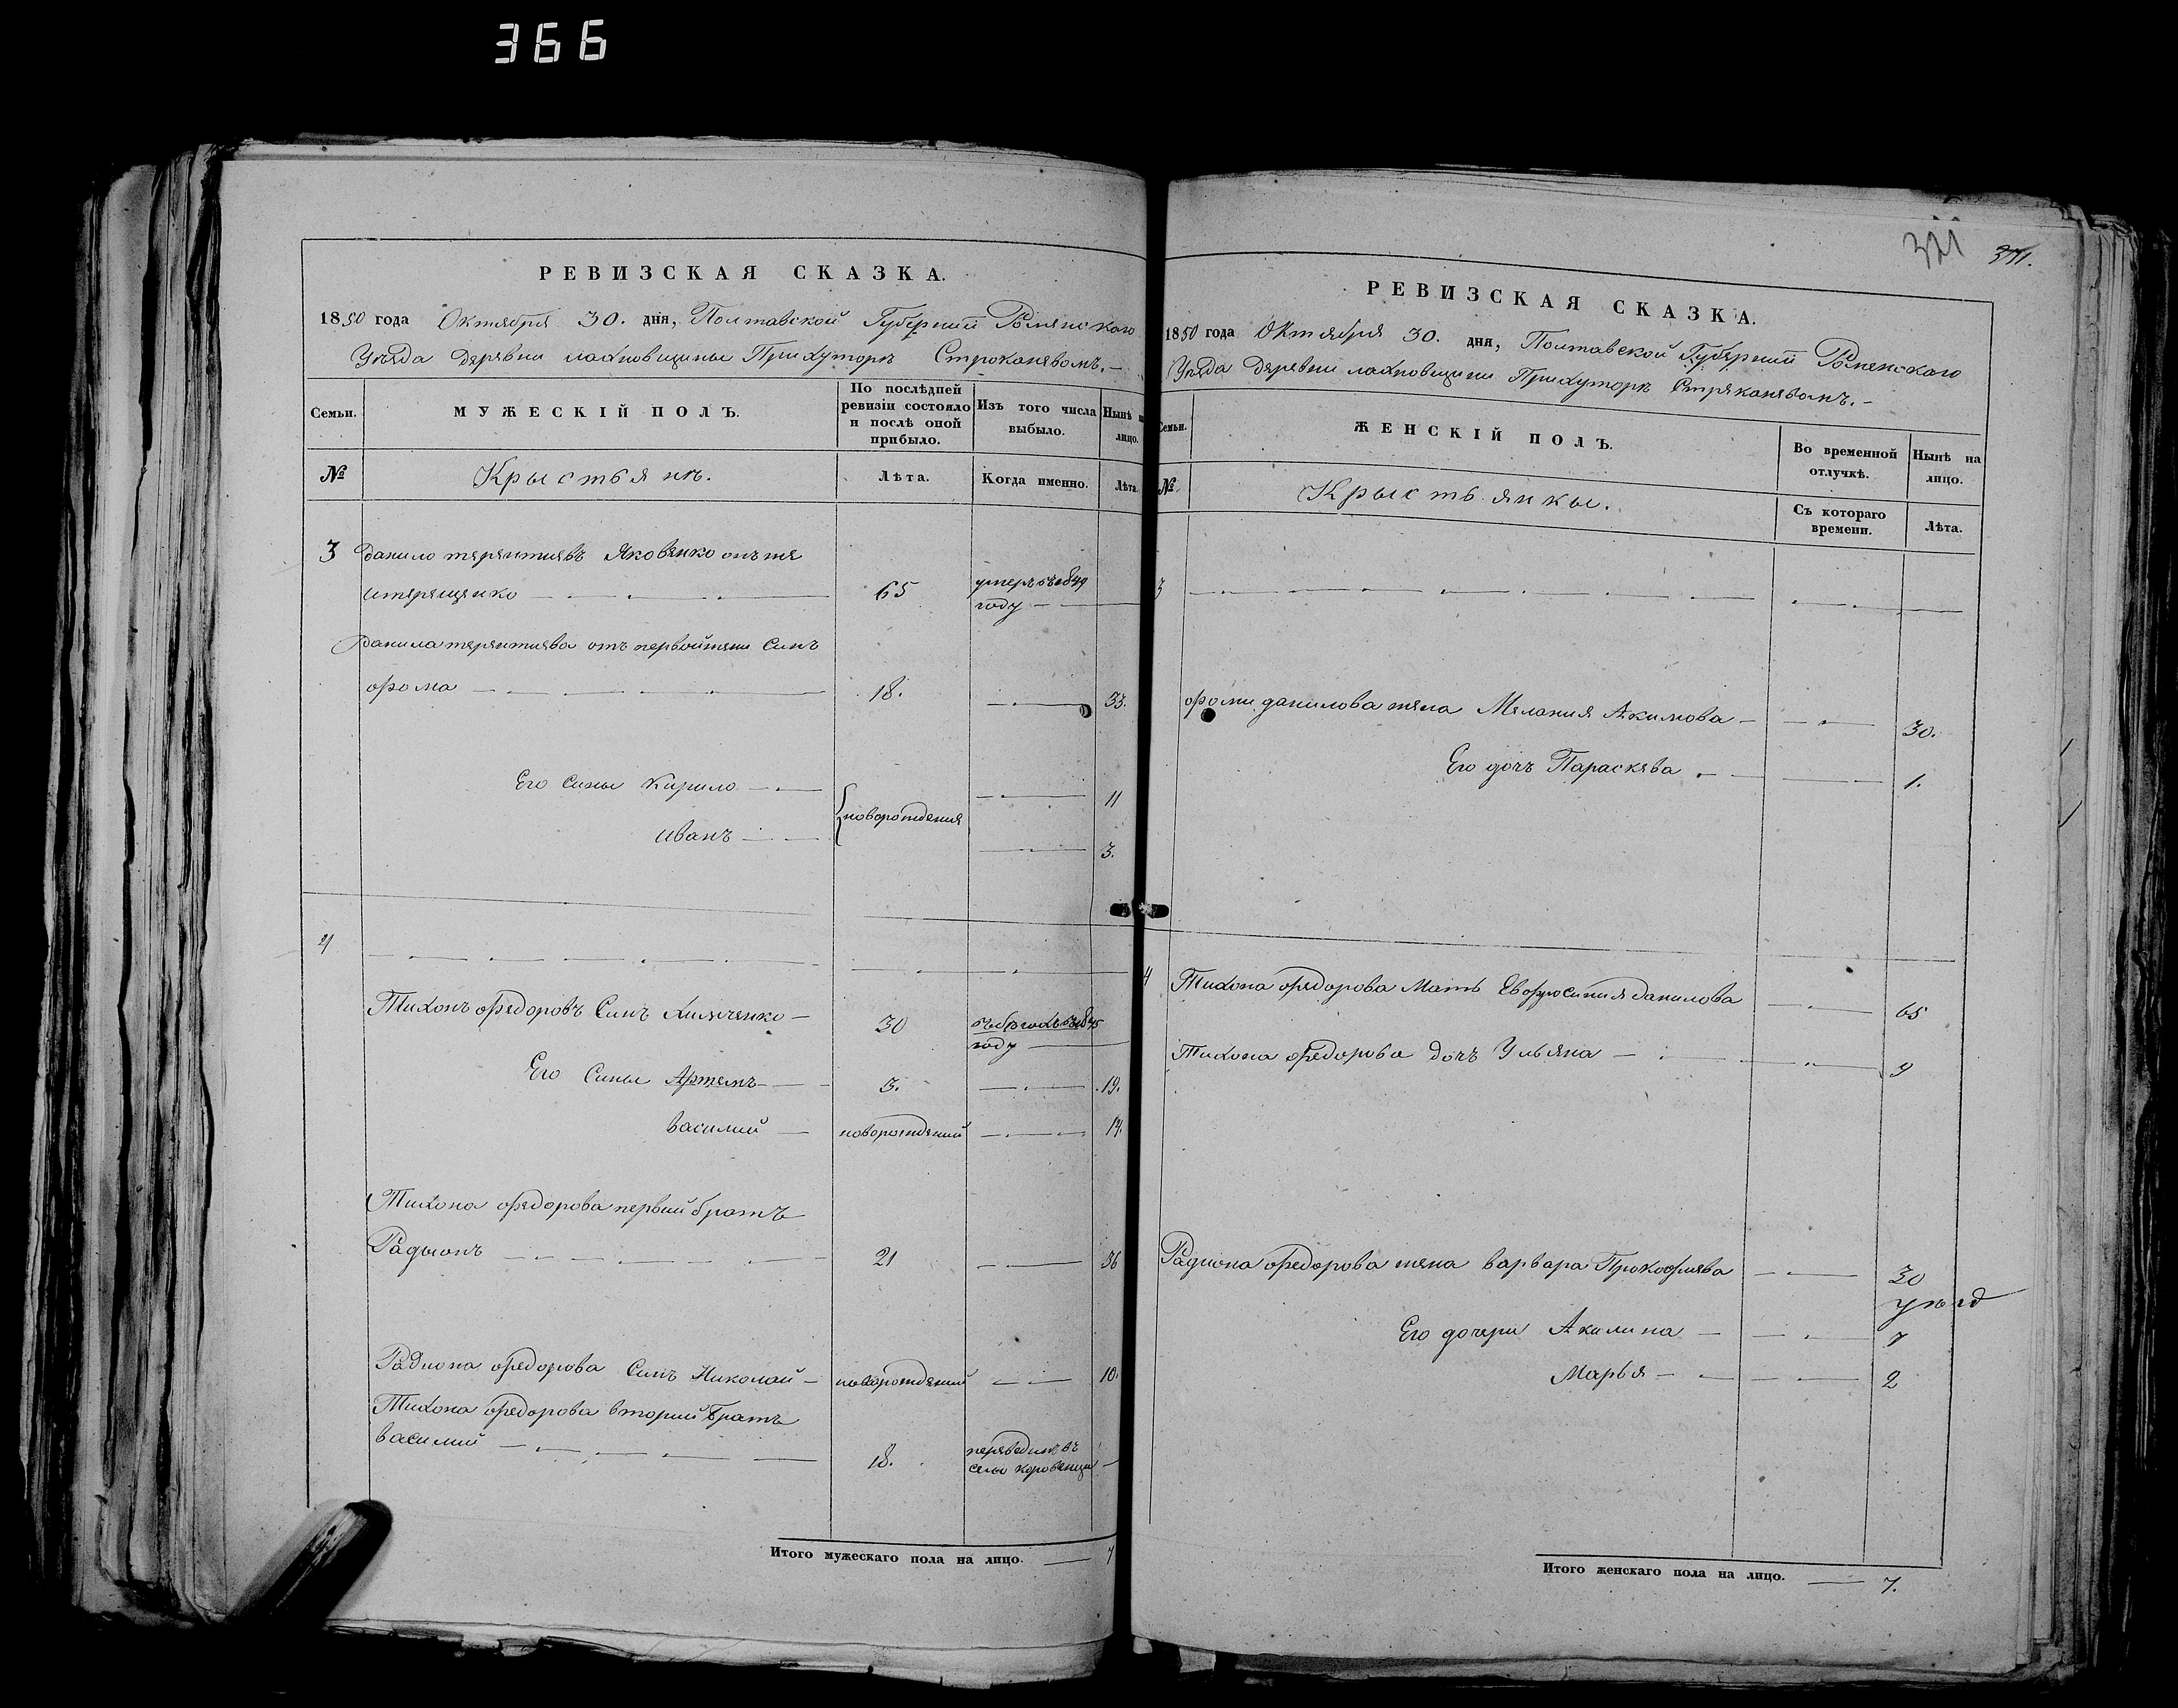 366
РЕВИЗСКАЯ СКАЗКА.
1850 года Октября 30. дня, Полтавской Губернии Роменского
Уезда деревни лахновщины При хуторе Строканевомъ.
Семьи.
МУЖЕСКІЙ ПОЛЪ.
По послѣдней ревизіи состояло и послѣ оной прибыло.
Изъ того числа выбыло.
Нынѣ на лицо.
№
Крыстьяне.
Лѣта.
Когда именно.
Лѣта.
3 данило терентиевъ Яковенко онъ же
итерещенко 65 умеръ въ 1849
году
данила терентиева отъ первой жени Синъ
фома 18. 33.
Его Сины Кирило новорождения 11
иванъ 3.
4
Тихонъ федоровъ Синъ 30
году
Его Сины Артемъ 3. 19.
василий новорождений 14.
Тихона федорова первий братъ
Радыонъ 21 36
Радиона федорова Синъ Николай новорожденний 10.
Тихона федорова вторий Братъ
василий 18. перевединъ въ
село коровенци
Итого мужескаго пола на лицо. 7
321 371.
РЕВИЗСКАЯ СКАЗКА.
1850 года Октября 30. дня, Полтавской Губернии Роменского
Уезда деревни лахновщини При хуторе Стреканевомъ.
Семьи.
ЖЕНСКІЙ ПОЛЪ.
Во временной отлучкѣ.
Нынѣ на лицо.
№
Крыстьянкы.
Съ котораго времени.
Лѣта.
3
фоми данилова жена Мелания Акимова 30.
Его дочъ Параскева 1.
4 Тихона федорова Мать Евфросиния данилова 65
Тихона федорова дочъ Ульяна 9
Радиона федорова жена варвара Прокофиева 30
Его дочери Акилина 7
Марья 2
Итого женскаго пола на лицо. 7.